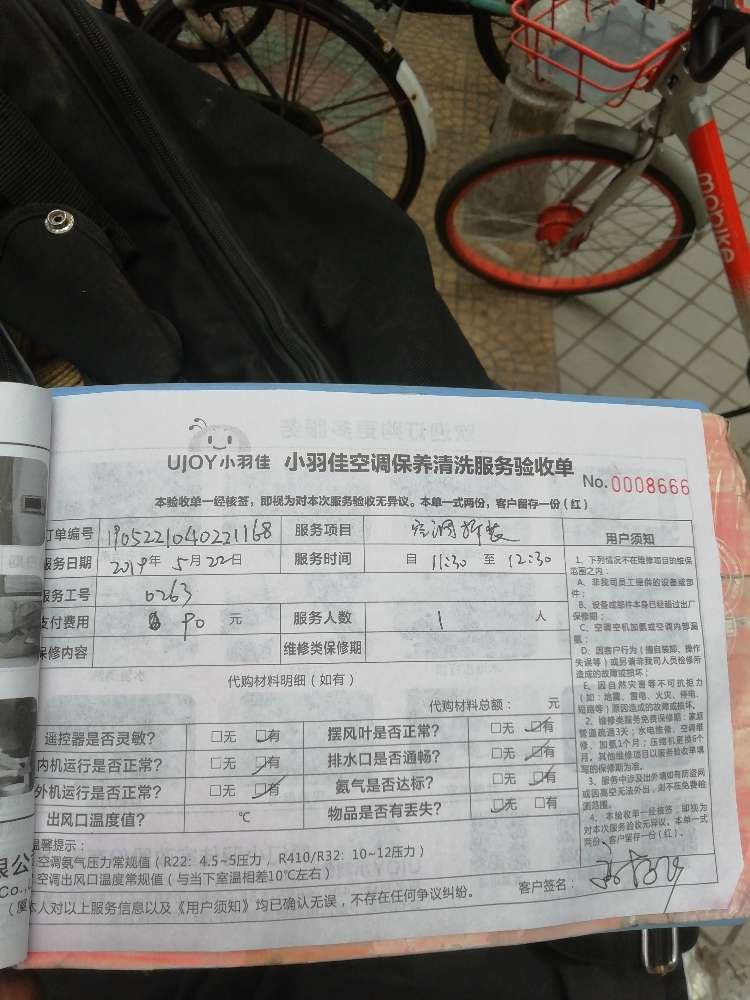 mobike
UJOY小羽佳 小羽佳空调保养清洗服务验收单
No.0008666
本验收单一经核签，即视为对本次服务验收无异议。本单一式两份，客户留存一份（红）
订单编号 1905221040221168 服务项目 空调拆装
服务日期 2019年 5月 22日 服务时间 自 11:30 至 12:30
服务工号 0263
支付费用 90 元 服务人数 1 人
保修内容 维修类保修期
代购材料明细（如有）
代购材料总额： 元
遥控器是否灵敏？ □无 □有 摆风叶是否正常？ □无 □有
内机运行是否正常？ □无 □有 排水口是否通畅？ □无 □有
外机运行是否正常？ □无 □有 氨气是否达标？ □无 □有
出风口温度值？ ℃ 物品是否有丢失？ □无 □有
用户须知
1、下列情况不在维修项目的维保
范围之内：
A、非我司员工提供的设备或部
件；
B、设备或部件本身已经超过出厂
保修期；
C、空调空机加氨或空调内部漏
氨；
D、因客户行为（擅自装卸、操作
失误等）或另请非我司人员检修所
造成的故障或损坏；
E、因自然灾害等不可抗拒力
（如：地震、雷电、火灾、停电、
短路等）原因造成的故障或损坏。
2、维修类服务免费保修期：家庭
管道疏通3天；水电维修、空调维
修、加氨1个月；压缩机更换6个
月。其他维修项目以服务验收单填
写的保修期为准。
3、服务中涉及出外墙如有防盗网
或因高空无法外出，则不在免费检
测范围。
4、本验收单一经核签，即视为
对本次服务验收无异议。本单一式
两份，客户留存一份（红）。
温馨提示：
空调氨气压力常规值（R22：4.5~5压力，R410/R32：10~12压力）
空调出风口温度常规值（与当下室温相差10℃左右）
客户签名：
本人对以上服务信息以及《用户须知》均已确认无误，不存在任何争议纠纷。
限公
Co.,
（厦